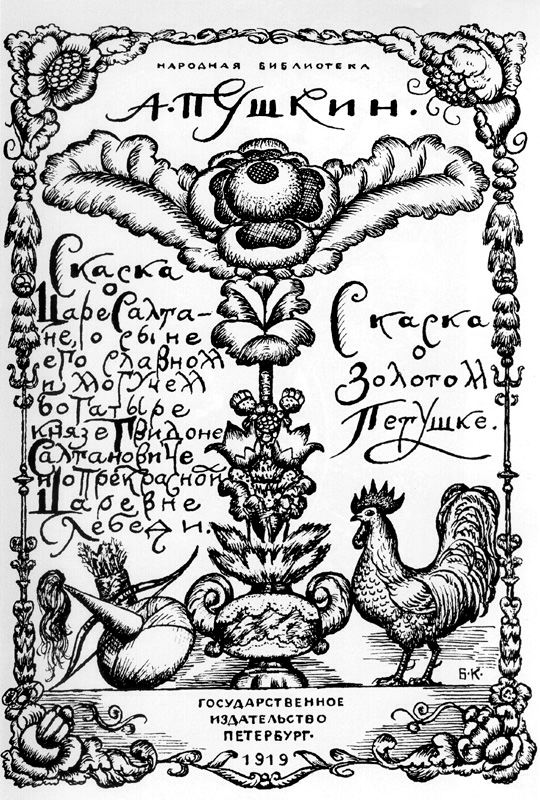 НАРОДНАЯ БИБЛИОТЕКА
А. ПУШКИН.
Скаска
о
Царе Салта-
не, о сыне
его славном
и могучем
богатыре
князе Гвидоне
Салтановиче
и о прекрасной
Царевне
Лебеди.
Скаска
о
Золотом
Петушке.
Б.К.
ГОСУДАРСТВЕННОЕ
ИЗДАТЕЛЬСТВО
ПЕТЕРБУРГ.
1919